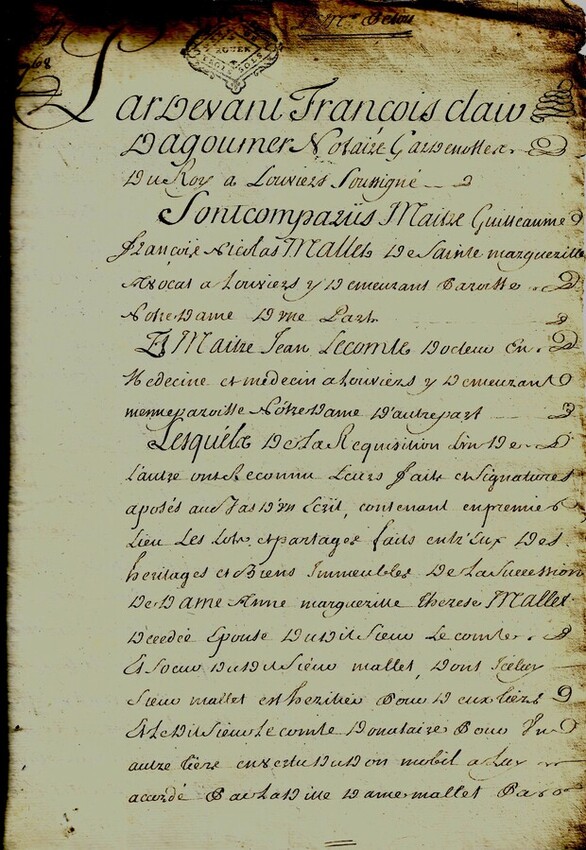 Pardevant François claw
Dagoumer Notaire Gardenottes
Du Roy a Louviers Soussigné
Sont comparüs Maitre Guilleaume
françois Nicolas Mallet De Sainte margueritte
Avocat a Louviers y Demeurant Paroisse
Notre Dame D'une Part
Et Maitre Jean Lecomte Docteur En
Medecine et medecin a Louviers y Demeurant
meme paroisse Nôtre Dame D'autre part
Lesquels De la Requisition L'un De
L'autre ont Reconnu Leurs faits et signatures
aposés au bas D'un Ecrit, contenant en premier
Lieu Les Lots et partages faits entr'Eux Des
heritages et Biens Immeubles De la Succession
De Dame Anne margueritte therese Mallet
Decedée Epouse Dudit Sieur Le comte
Et Soeur Dudit Sieur mallet, Dont Iceluy
Sieur mallet est heritier Pour Deux tiers
Et Ledit Sieur Le comte Donataire Pour Un
autre tiers en vertu Du Don mobil a Luy
accordé Par La Ditte Dame mallet Par